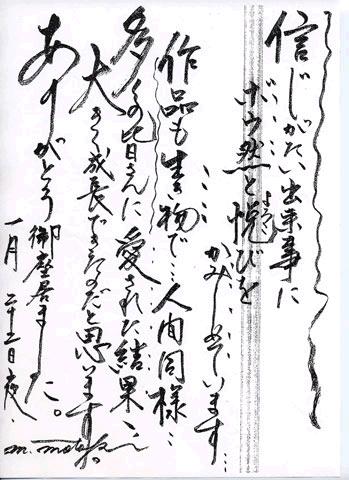 信じがたい出来事に
ボウ然と悦びを
よろこ
かみしめています…
作品も生き物で…人間同様…
多くの皆さんに愛された結果…
大きく成長できたのだと思います。
ありがとう御座居ました。
一月二十二日夜.